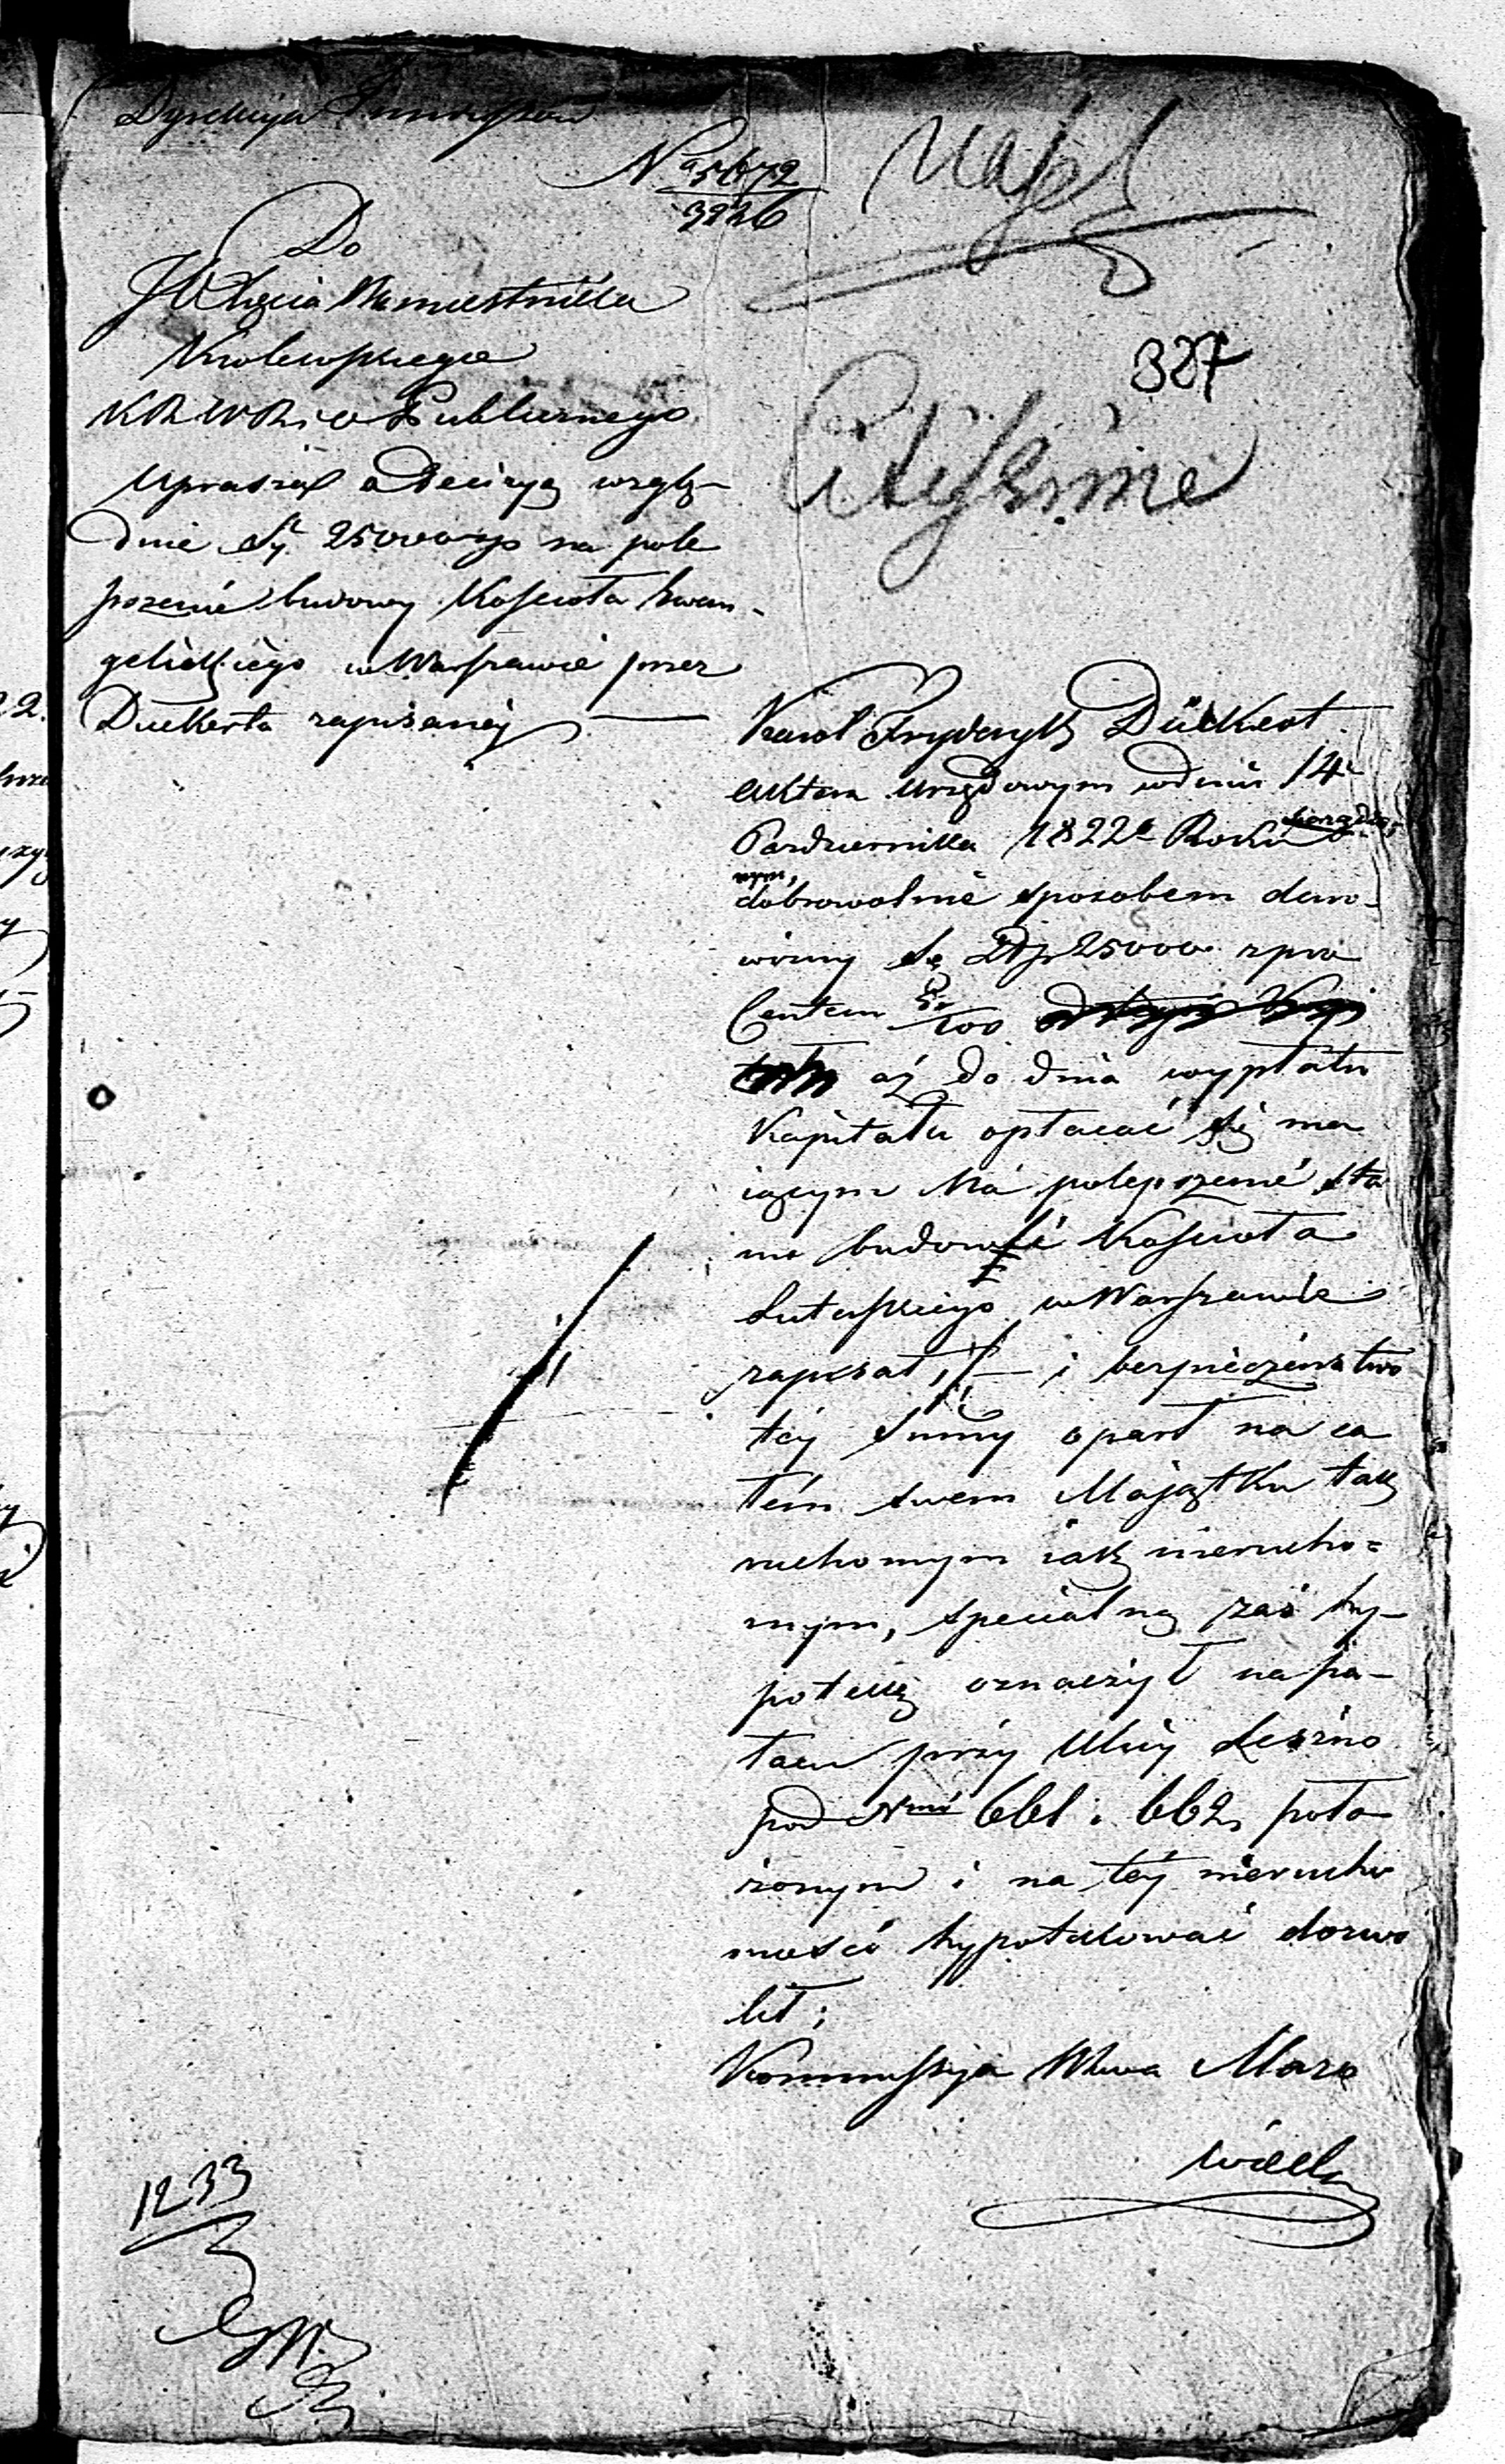 Dyrekcyja Funduszów
N 5672
3926
Do
JO Xięcia Namiestnika
Krolewskiego
K R W R i O Publicznego
uprasza o Decizyą wzglę-
dnie Sy 25000 zp na pole
pszenie budowy Kościoła Ewan-
gelickiego w Warszawie przez
Duckerta zapisanéy
327
Karol Fryderyk Dückert
aktem urzędowym w dniu 14
Pazdziernika 1822 Roku sporządzo-
nym,
dobrowolnie sposobem daro-
wizny Sę Złp 25000 z pro
Centem 5/100
aż do dnia wypłatu
Kapitału opłacać się ma
iącym na polepszenié sta
nu budowli Kościoła
Luterskiego w Warszawie
zapisał, i bezpieczeństwo
téy Summy oparł na ca
łém swem Maiątku tak
ruchomym iak nierucho=
mym, specialną zaś hy-
potekę oznaczył na pa-
łacu przy Ulicy Leszno
pod Nrmi 661 i 662, poło
żonym i na téy nierucho
mości hypotekować dozwo
lił;
Kommissyja Wdwa Mazo
wiecka
1233